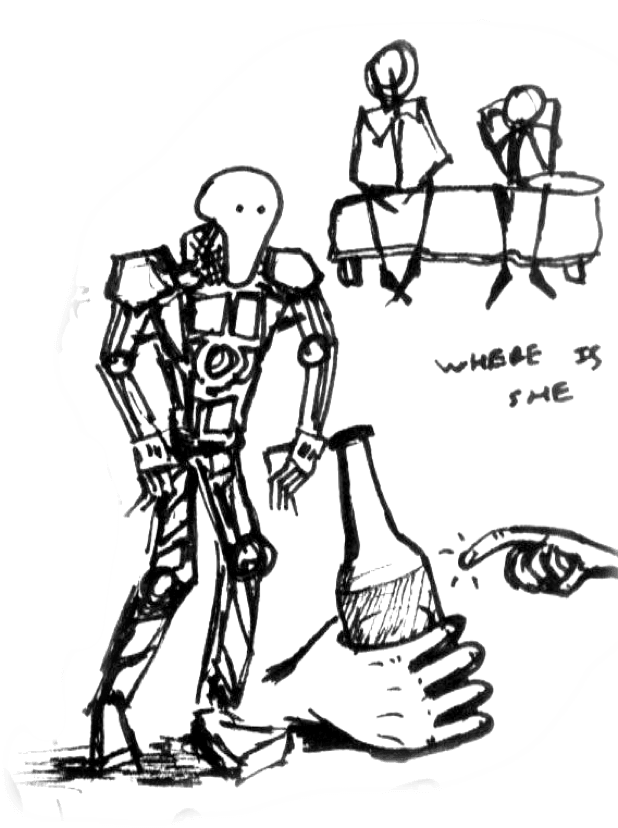 WHERE IS
SHE